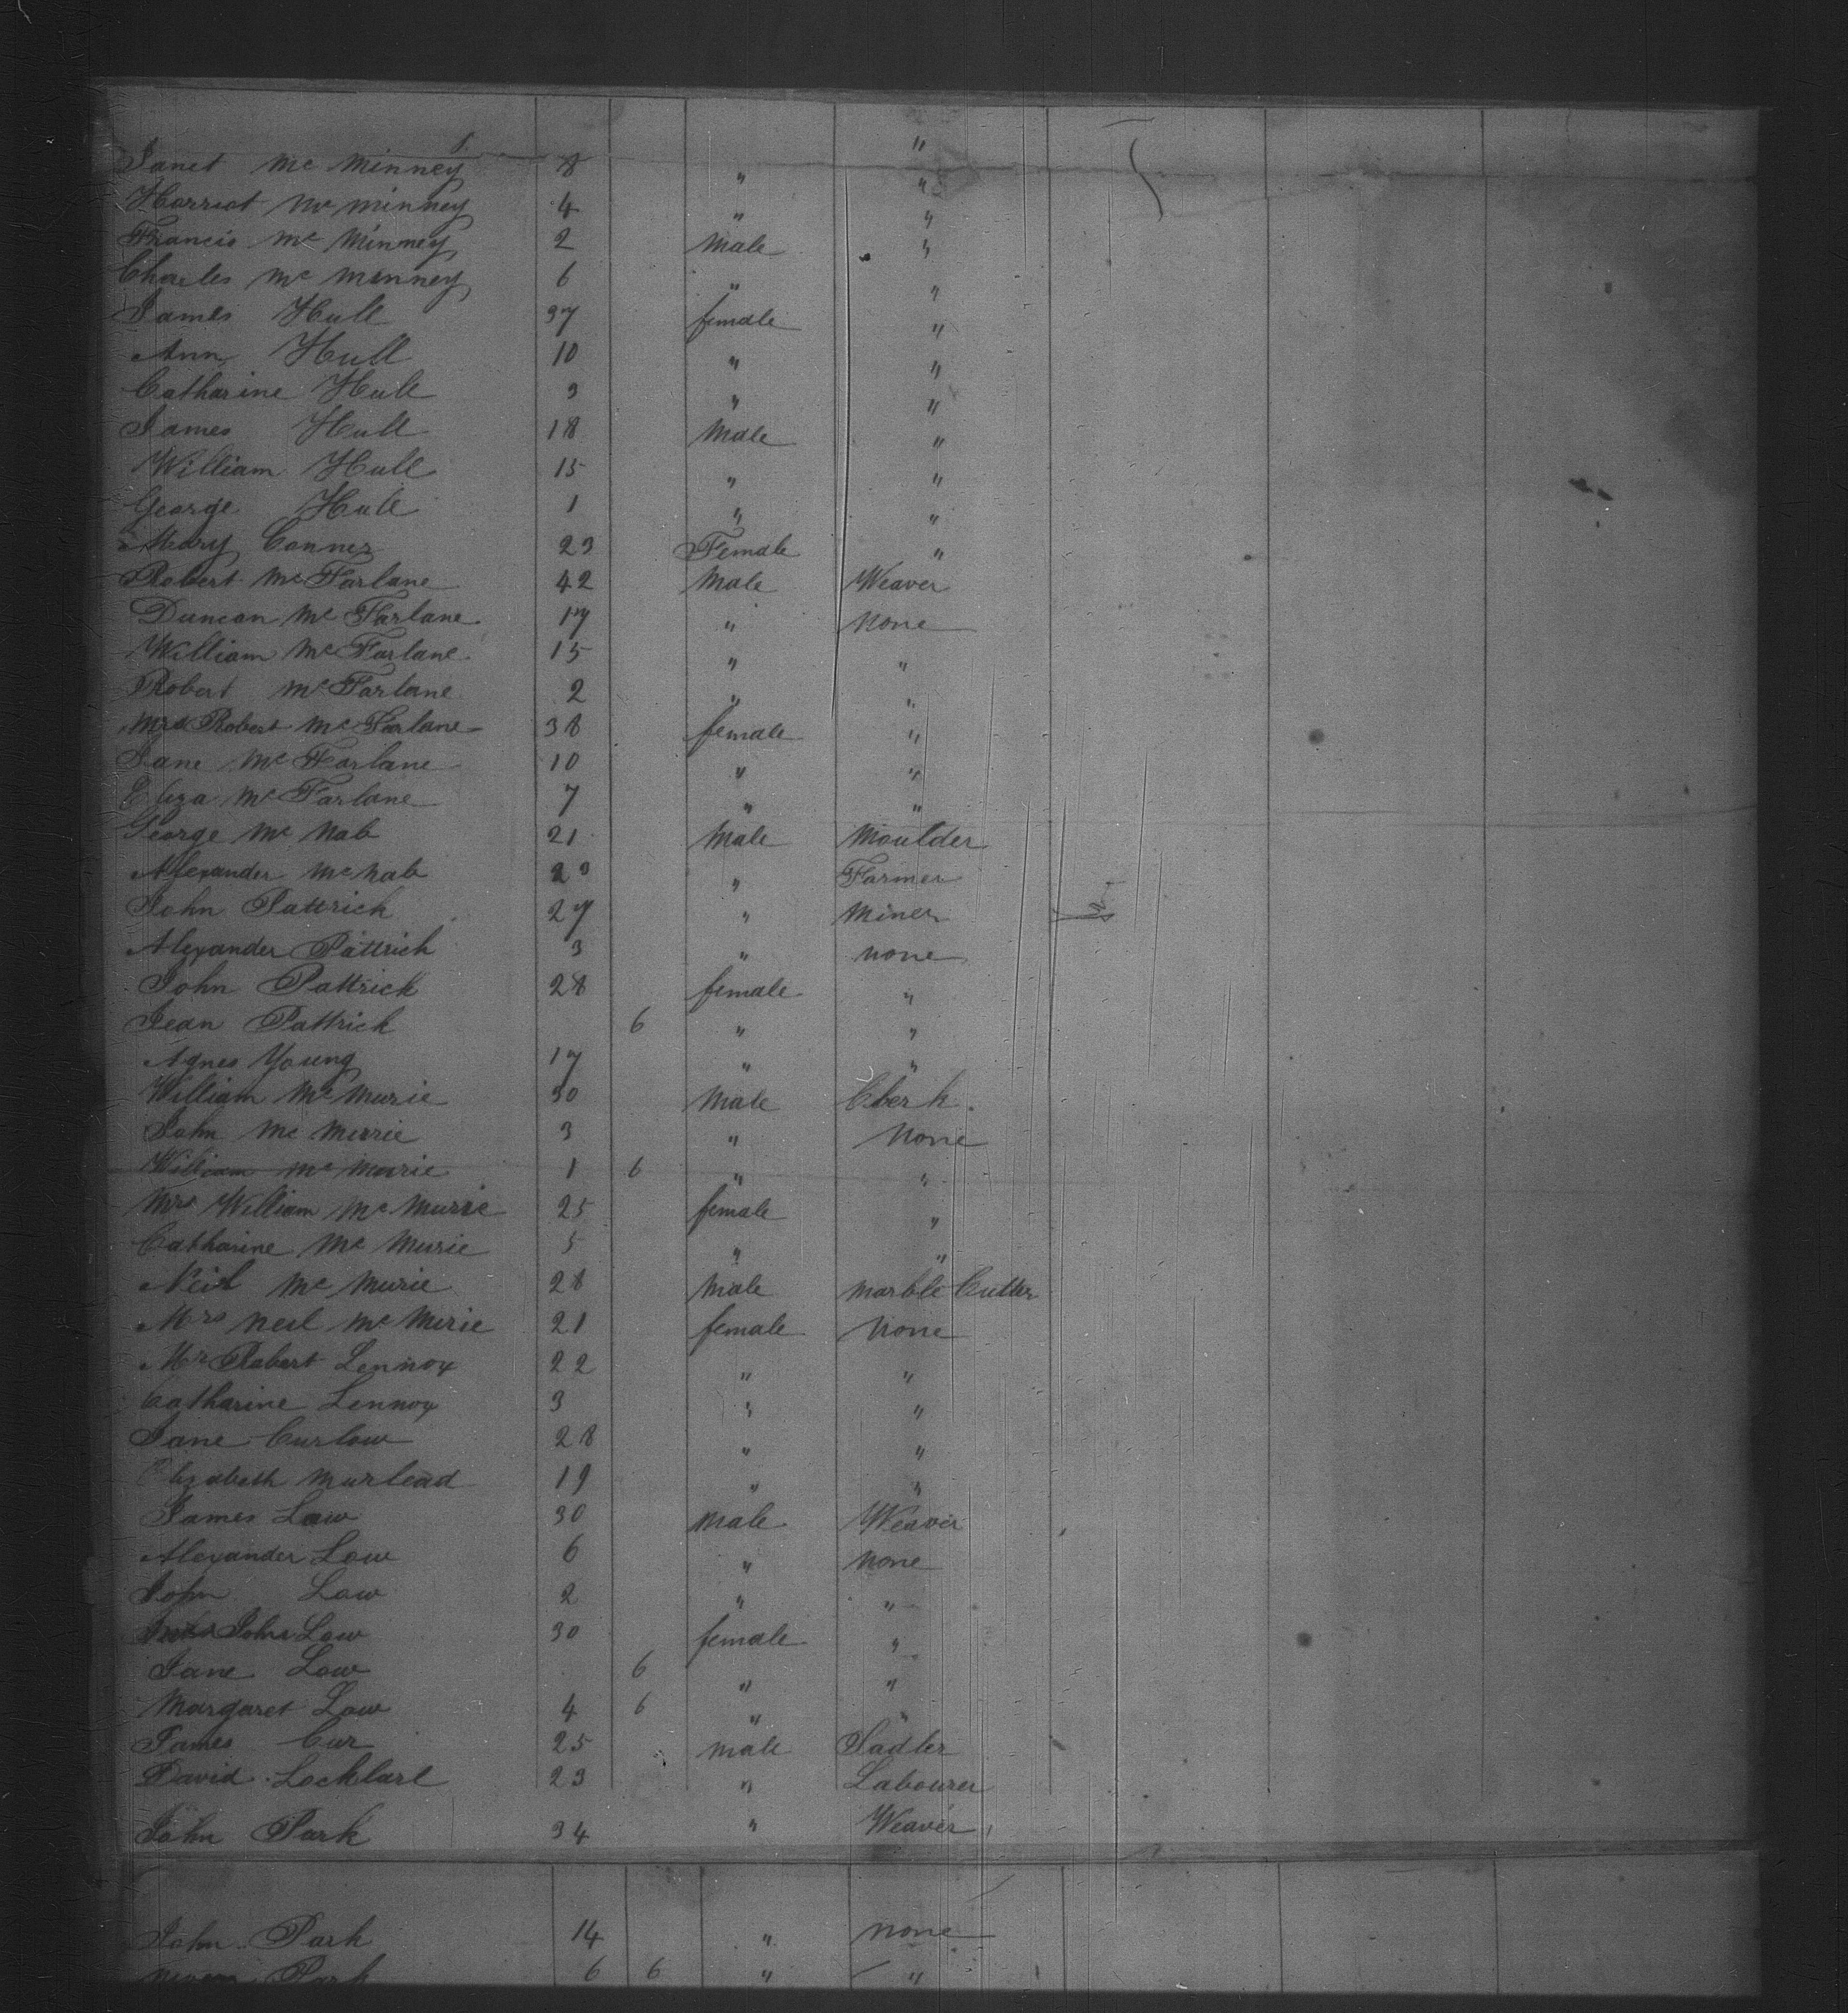 Janet Mc Minney 8 " "
Harriot Mc Minney 4 " "
Francis Mc Minney 2 Male "
Charles Mc Minney 6 " "
James Hull 37 female "
Ann Hull 10 " "
Catharine Hull 3 " "
James Hull 18 Male "
William Hull 15 " "
George Hull 1 " "
Mary Conner 23 Female "
Robert Mc Farlane 42 Male Weaver
Duncan Mc Farlane 17 " none
William Mc Farlane 15 " "
Robert Mc Farlane 2 " "
Mrs Robert Mc Farlane 38 female "
Jane Mc Farlane 10 " "
Eliza Mc Farlane 7 " "
George Mc Nab 21 Male Moulder
Alexander Mc Nab 23 " Farmer
John Pattrick 27 " Miner
Alexander Pattrick 3 " none
John Pattrick 28 female "
Jean Pattrick 6 " "
Agnes Young 17 " "
William Mc Murie 30 Male Clerk
John Mc Murie 3 " None
William Mc Murie 1 6 " "
Mrs William Mc Murie 25 female "
Catharine Mc Murie 5 " "
Neil Mc Murie 28 Male marble Cutter
Mrs Neil Mc Murie 21 female None
Mrs Robert Lennox 22 " "
Catharine Lennox 3 " "
Jane Curlow 28 " "
Elizabeth Murlead 19 " "
James Law 30 Male Weaver
Alexander Law 6 " None
John Law 2 " "
Mrs John Law 30 female "
Jane Law 6 " "
Margaret Law 4 6 " "
James Cur 25 male Sadler
David Locklart 23 " Labourer
John Park 34 " Weaver
John Park 14 " none
Park 6 6 " "